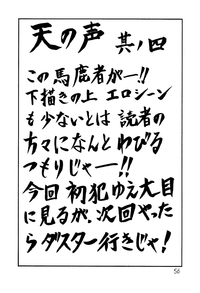 天の声 其ノ四
この馬鹿者がー!!
下描きの上 エロシーン
も少ないとは 読者の
方々になんとわびる
つもりじゃー!!
今回 初犯ゆえ大目
に見るが、次回やった
らダスター行きじゃ!
56